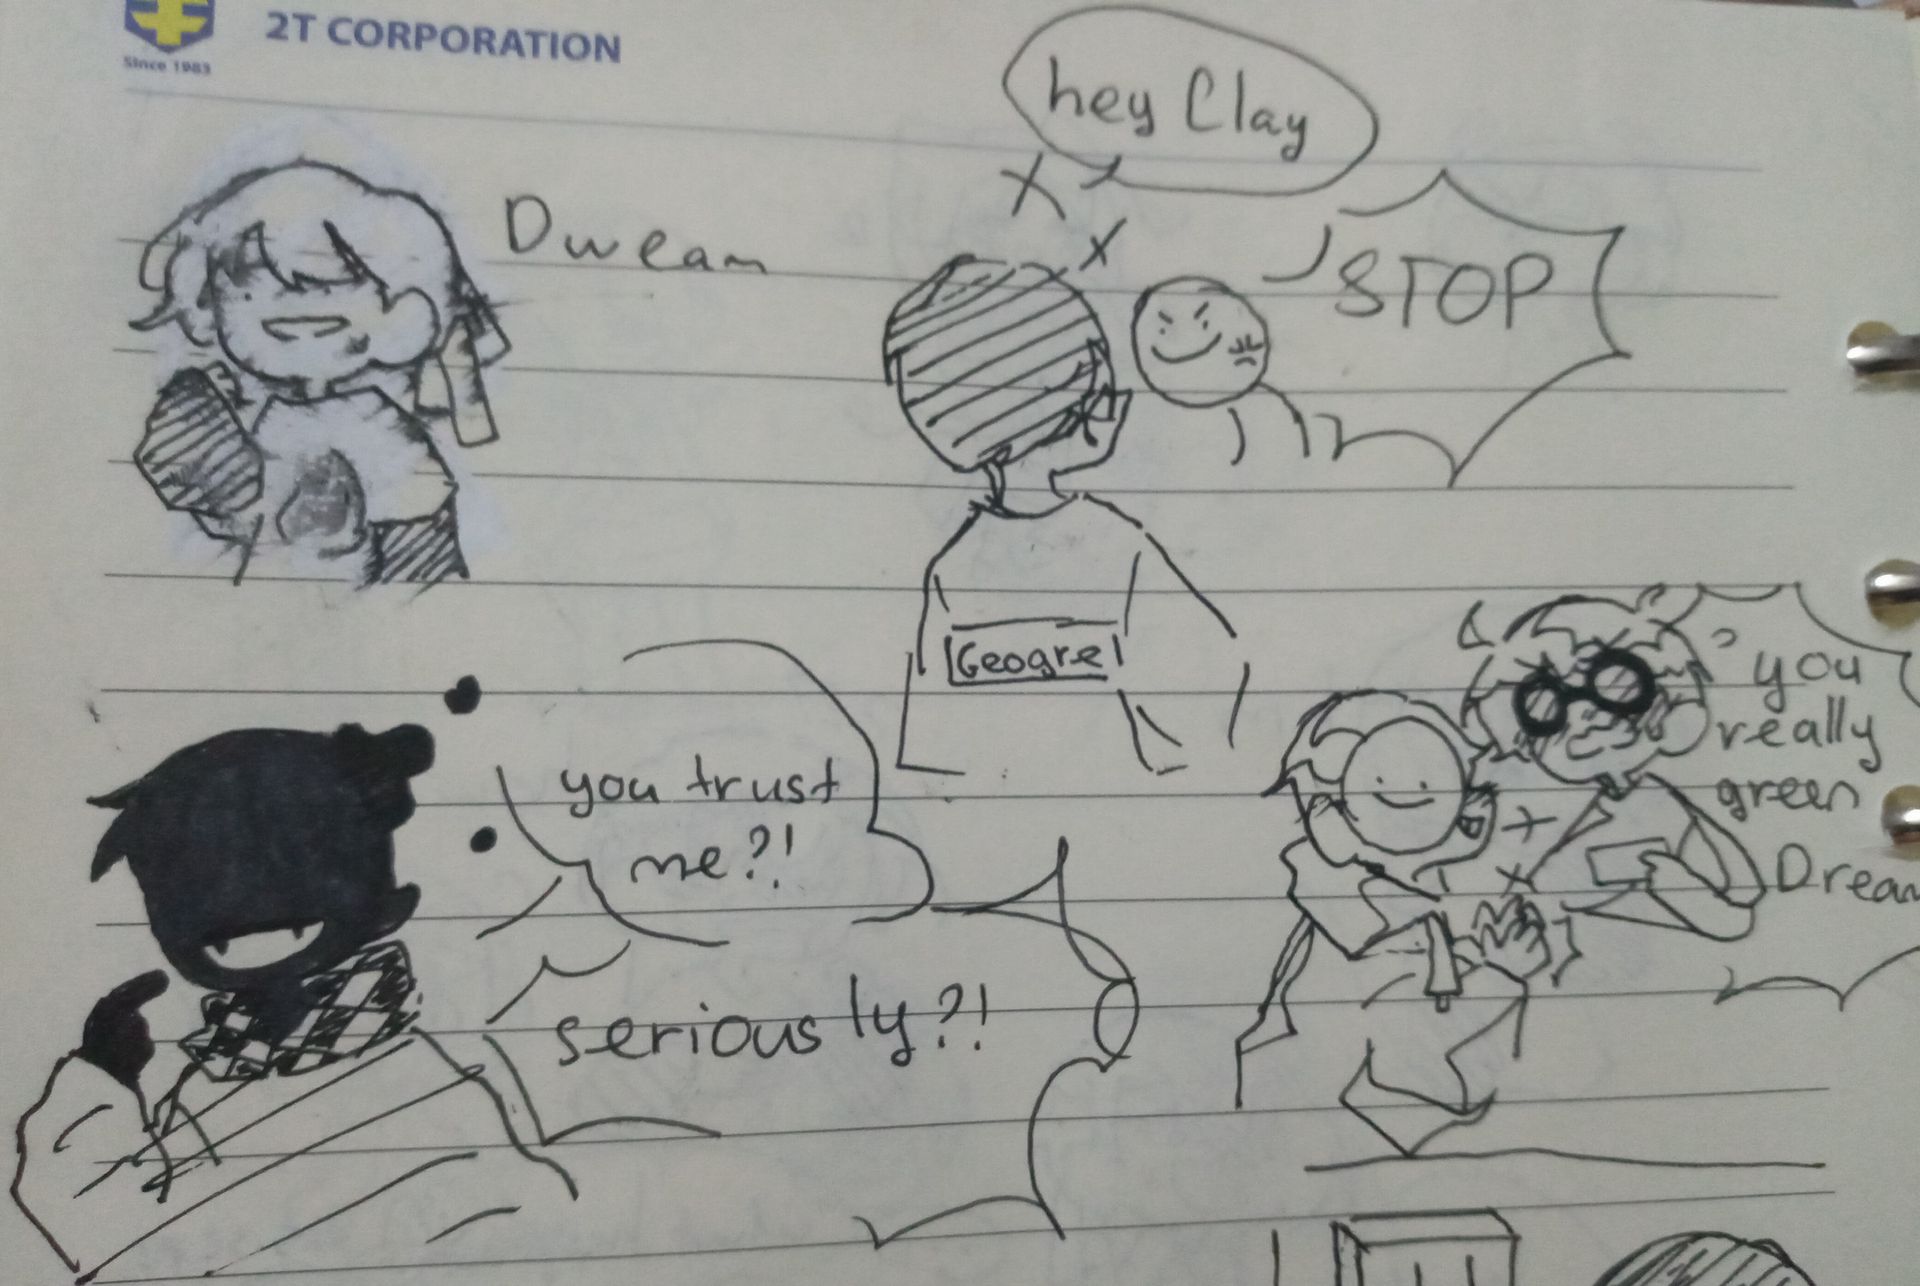 2T CORPORATION
Since 1983
hey Clay
Dweam
STOP
Geogre
you
really
green
Dream
you trust
me?!
seriously?!